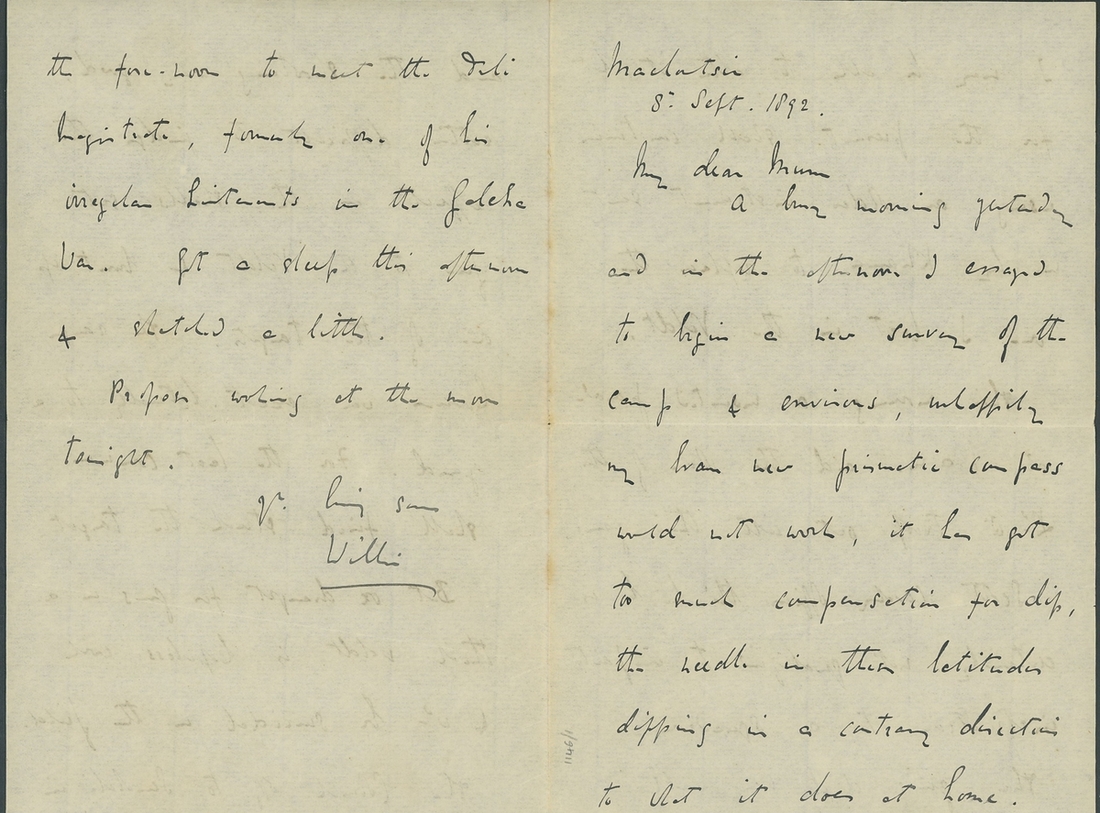 the fore-noon to meet the Tuli
Magistrate, formerly one of his
irregular Lieutenants in the Galeka
War. Got a sleep this afternoon
& sketched a little.
Propose working at the moon
tonight.
yr. loving son
Willie
Macloutsie
8th Sept. 1892.
My dear Mum
A busy morning yesterday
and in the afternoon I essayed
to begin a new survey of the
camp & environs, unhappily
my bran new prismatic compass
would not work, it has got
too much compensation for dip,
the needle in these latitudes
dipping in a contrary direction
to what it does at home.
1146/1